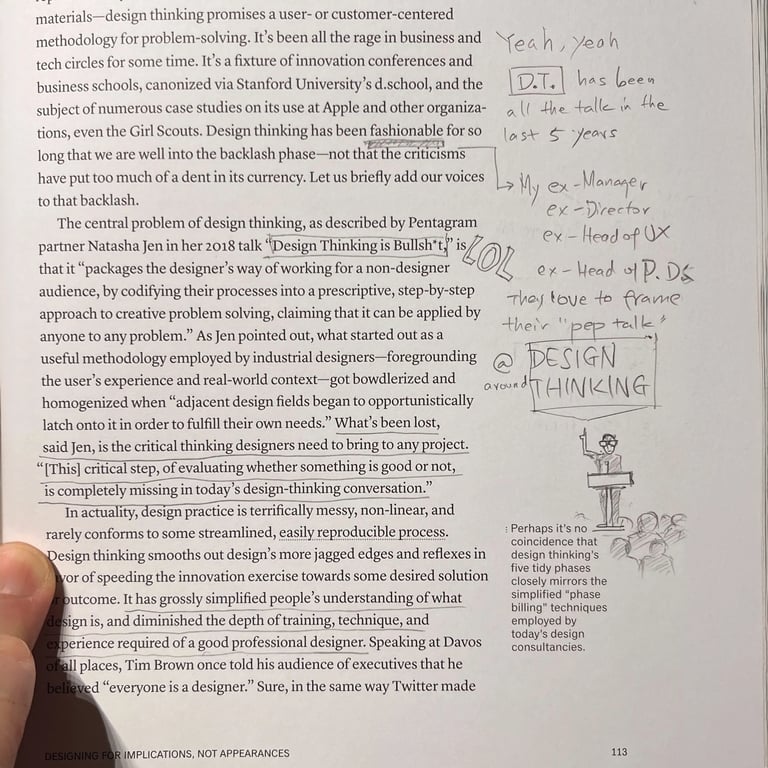 materials—design thinking promises a user- or customer-centered
methodology for problem-solving. It's been all the rage in business and
tech circles for some time. It's a fixture of innovation conferences and
business schools, canonized via Stanford University's d.school, and the
subject of numerous case studies on its use at Apple and other organiza-
tions, even the Girl Scouts. Design thinking has been fashionable for so
long that we are well into the backlash phase—not that the criticisms
have put too much of a dent in its currency. Let us briefly add our voices
to that backlash.
The central problem of design thinking, as described by Pentagram
partner Natasha Jen in her 2018 talk “Design Thinking is Bullsh*t,” is
that it “packages the designer's way of working for a non-designer
audience, by codifying their processes into a prescriptive, step-by-step
approach to creative problem solving, claiming that it can be applied by
anyone to any problem.” As Jen pointed out, what started out as a
useful methodology employed by industrial designers—foregrounding
the user's experience and real-world context—got bowdlerized and
homogenized when “adjacent design fields began to opportunistically
latch onto it in order to fulfill their own needs.” What's been lost,
said Jen, is the critical thinking designers need to bring to any project.
“[This] critical step, of evaluating whether something is good or not,
is completely missing in today's design-thinking conversation.”
In actuality, design practice is terrifically messy, non-linear, and
rarely conforms to some streamlined, easily reproducible process.
Design thinking smooths out design's more jagged edges and reflexes in
vor of speeding the innovation exercise towards some desired solution
outcome. It has grossly simplified people's understanding of what
design is, and diminished the depth of training, technique, and
experience required of a good professional designer. Speaking at Davos
of all places, Tim Brown once told his audience of executives that he
believed “everyone is a designer.” Sure, in the same way Twitter made
Yeah, yeah
D.T. has been
all the talk in the
last 5 years
My ex-Manager
ex-Director
ex-Head of UX
ex-Head of P. Ds
LOL
They love to frame
their "pep talk"
@ DESIGN
around THINKING
: Perhaps it's no
coincidence that
design thinking's
five tidy phases
closely mirrors the
simplified “phase
billing” techniques
employed by
today's design
consultancies.
DESIGNING FOR IMPLICATIONS, NOT APPEARANCES
113